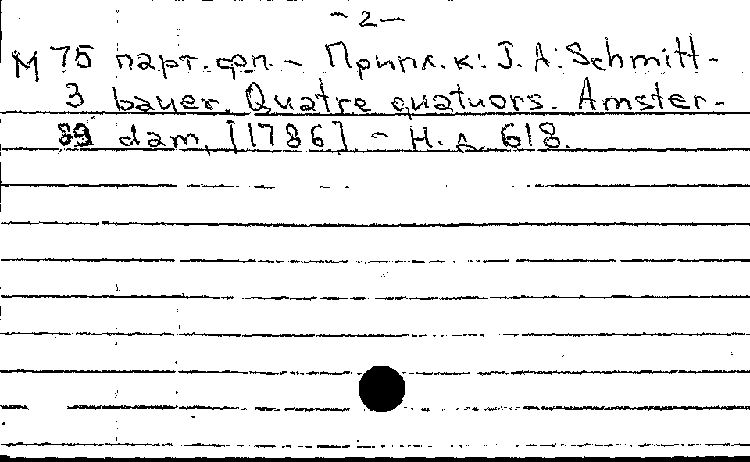 - 2 -
М 75 парт. фп. - Припл. к: J. A. Schmitt-
3 bauer. Quatre quatuors. Amster-
89 dam, [1786]. - Н. д. 618.